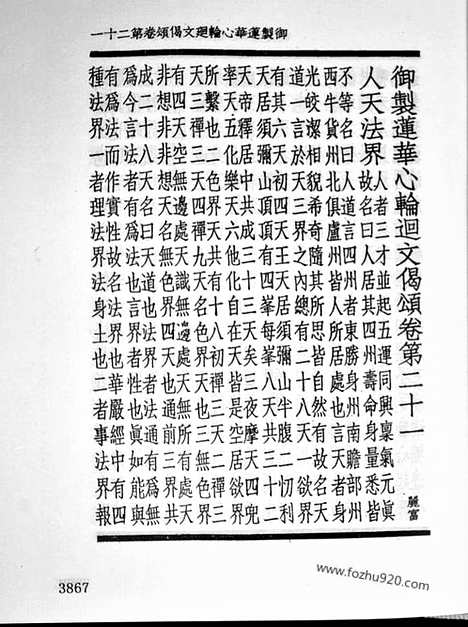 御製蓮華心輪廻文偈頌卷第二十一
御製蓮華心輪迴文偈頌卷第二十一 麗富
人天法界
人者三才並起五運同興稟氣元眞
故名曰人居其四州壽命身量悉皆
不等名曰人道言四州者東勝身州南贍部州
西牛貨州北俱盧州皆人所居處也言天者身
光皎潔相貌希奇隨其所思皆自然有故名天
道一言於天三界之內總有二十八天一欲界
有其六天初四天王天居須彌山半腹二忉利
天居須彌山頂頂有四峯每峯八天三十二
天帝釋居中共成三十三天矣三夜摩天四兜
率天五化樂天六他化自在天皆是空居天欲界
所繫也二色界天共有十八初禪三天二禪三
天三禪三天四禪九天名色界也三無色界
有四天空無邊處天識無邊處天無所有處天
非有想非無想處天四天也通前三界共
成二十八天名曰天道也法界者法眞如爲界與無
爲今言法者有爲法也界者性也通有能與
有爲法而作實性故名法界華嚴經中有四
種法界一者理法界法身土也二者事法界報
3867
www.fozhu920.com